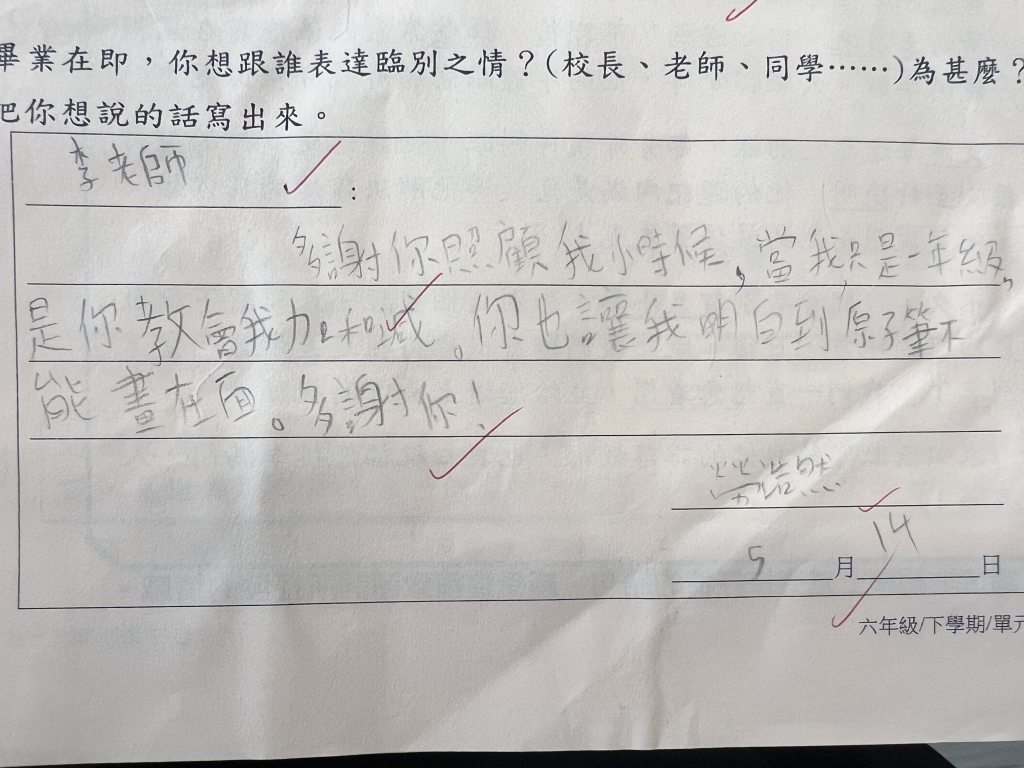 畢業在即，你想跟誰表達臨別之情？（校長、老師、同學……）為甚麼？
把你想說的話寫出來。
李老師：
多謝你照顧我小時候，當我只是一年級，
是你教會我加和減。你也讓我明白到原子筆不
能畫在面。多謝你！
勞浩然
5月14日
六年級/下學期/單元